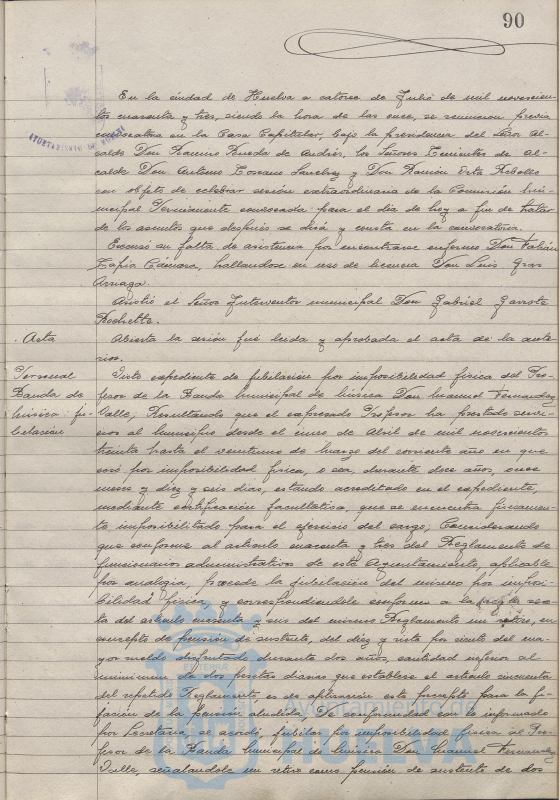 90
En la ciudad de Huelva a catorce de Julio de mil novecien-
tos cuarenta y tres, siendo la hora de las once, se reunieron previa
convocatoria en la Casa Capitular, bajo la presidencia del Señor Al-
calde Don Ramiro Pineda de Andrés, los Señores Tenientes de Al-
calde Don Antonio Toscano Sanchez y Don Ramón Orta Rebollo
con objeto de celebrar sesión extraordinaria de la Comisión Mu-
nicipal Permanente convocada para el día de hoy a fin de tratar
de los asuntos que después se dirá y consta en la convocatoria.
Excusó su falta de asistencia por encontrarse enfermo Don Fabián
Tapia Cámara, hallandose en uso de licencia Don Luis Gras
Arnaga.
Asistió el Señor Interventor municipal Don Gabriel Garrote
Abierta la sesión fué leida y aprobada el acta de la ante-
rior.
. Acta
Personal
Banda de
música: ju-
bilación
Visto expediente de jubilación por imposibilidad física del Pro-
fesor de la Banda Municipal de música Don Manuel Fernandez
Valle; Resultando que el expresado Profesor ha prestado servi-
cios al Municipio desde el cinco de Abril de mil novecientos
treinta hasta el veintiuno de Marzo del corriente año en que
cesó por imposibilidad física, o sea, durante doce años, once
meses y diez y seis dias, estando acreditado en el expediente,
mediante certificación facultativa, que se encuentra fisicamen-
te imposibilitado para el ejercicio del cargo; Considerando
que conforme al articulo cuarenta y tres del Reglamento de
funcionarios administrativos de este Ayuntamiento, aplicable
por analogia, procede la jubilación del mismo por imposi-
bilidad física, y correspondiendole conforme a la
ta del articulo cuarenta y seis del mismo Reglamento un retiro, en
concepto de pensión de sustento, del diez y siete por ciento del ma-
yor sueldo disfrutado durante dos años, cantidad inferior al
minimum de dos pesetas diarias que establece el articulo cincuenta
del repetido Reglamento, es de aplicación este precepto para la fi-
jación de la pensión aludida. De conformidad con lo informado
por Secretaria se acordó, jubilar por imposibilidad física al Pro-
fesor de la Banda Municipal de música Don Manuel Fernandez
Valle, señalandole un retiro como pensión de sustento de dos
Ayuntamiento de
HUELVA